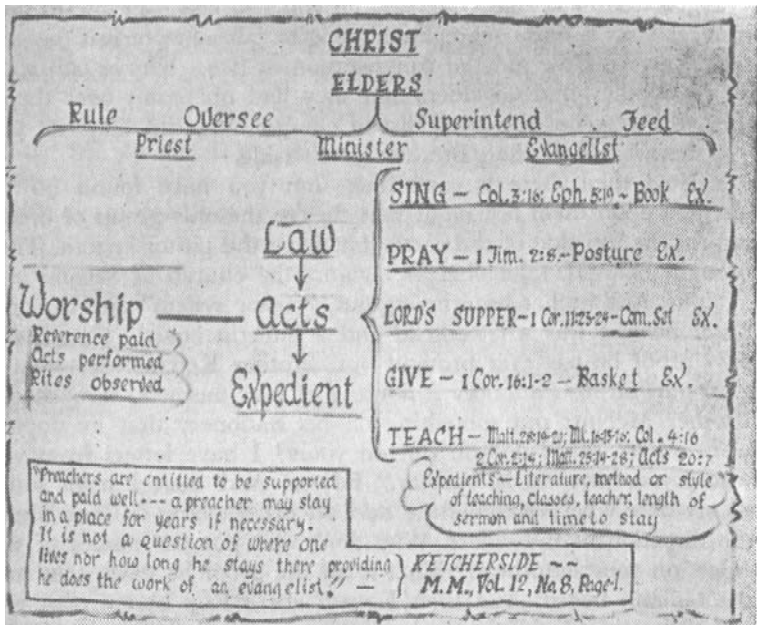 CHRIST
ELDERS
Rule Oversee Superintend Feed
Priest Minister Evangelist
Law
Worship acts
Reverence paid
Acts performed
Rites observed
Expedient
SING - Col. 3:16; Eph. 5:19 - Book Ex.
PRAY - 1 Tim. 2:8 - Posture Ex.
LORD'S SUPPER - 1 Cor. 11:23-29 - Com. Set Ex.
GIVE - 1 Cor. 16:1-2 - Basket Ex.
TEACH - Matt. 28:19-21; Mk. 16:15-16; Col. 4:16
2 Cor. 2:14; Matt. 25:14-28; Acts 20:7
Expedients - Literature, method or style
of teaching, classes, teacher, length of
sermon and time to stay
"Preachers are entitled to be supported
and paid well --- a preacher may stay
in a place for years if necessary.
It is not a question of where one
lives nor how long he stays there providing
he does the work of an evangelist." —
KETCHERSIDE ~~
M.M., Vol. 12, No. 8, Page 1.